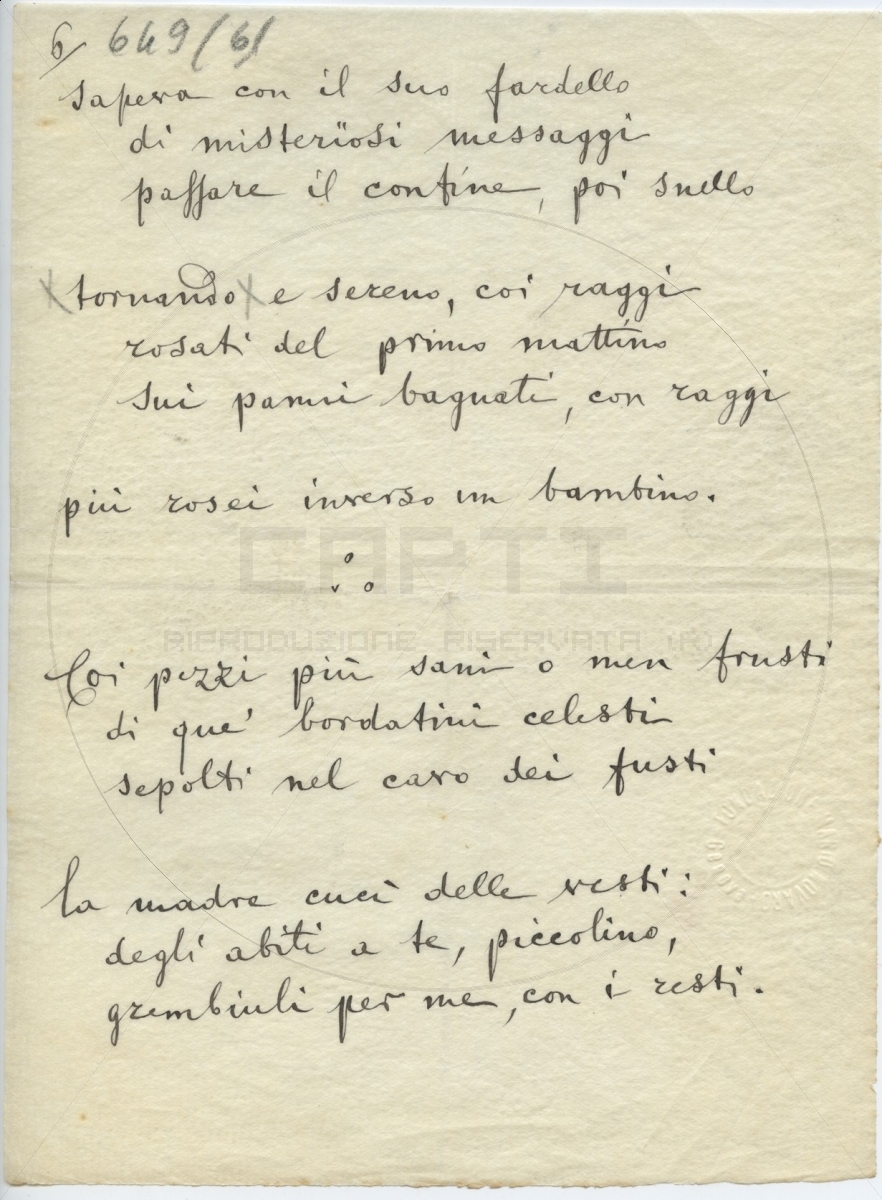 6/ 649/6/
sapeva con il suo fardello
di misterïosi messaggi
passare il confine, poi snello
tornando e sereno, coi raggi
rosati del primo mattino
sui panni bagnati, con raggi
più rosei inverso un bambino.
CAPTI
RIPRODUZIONE RISERVATA (R)
Coi pezzi più sani o men frusti
di que' bordatini celesti
sepolti nel cavo dei fusti
la madre cucì delle vesti:
degli abiti a te, piccolino,
grembiuli per me, con i resti.